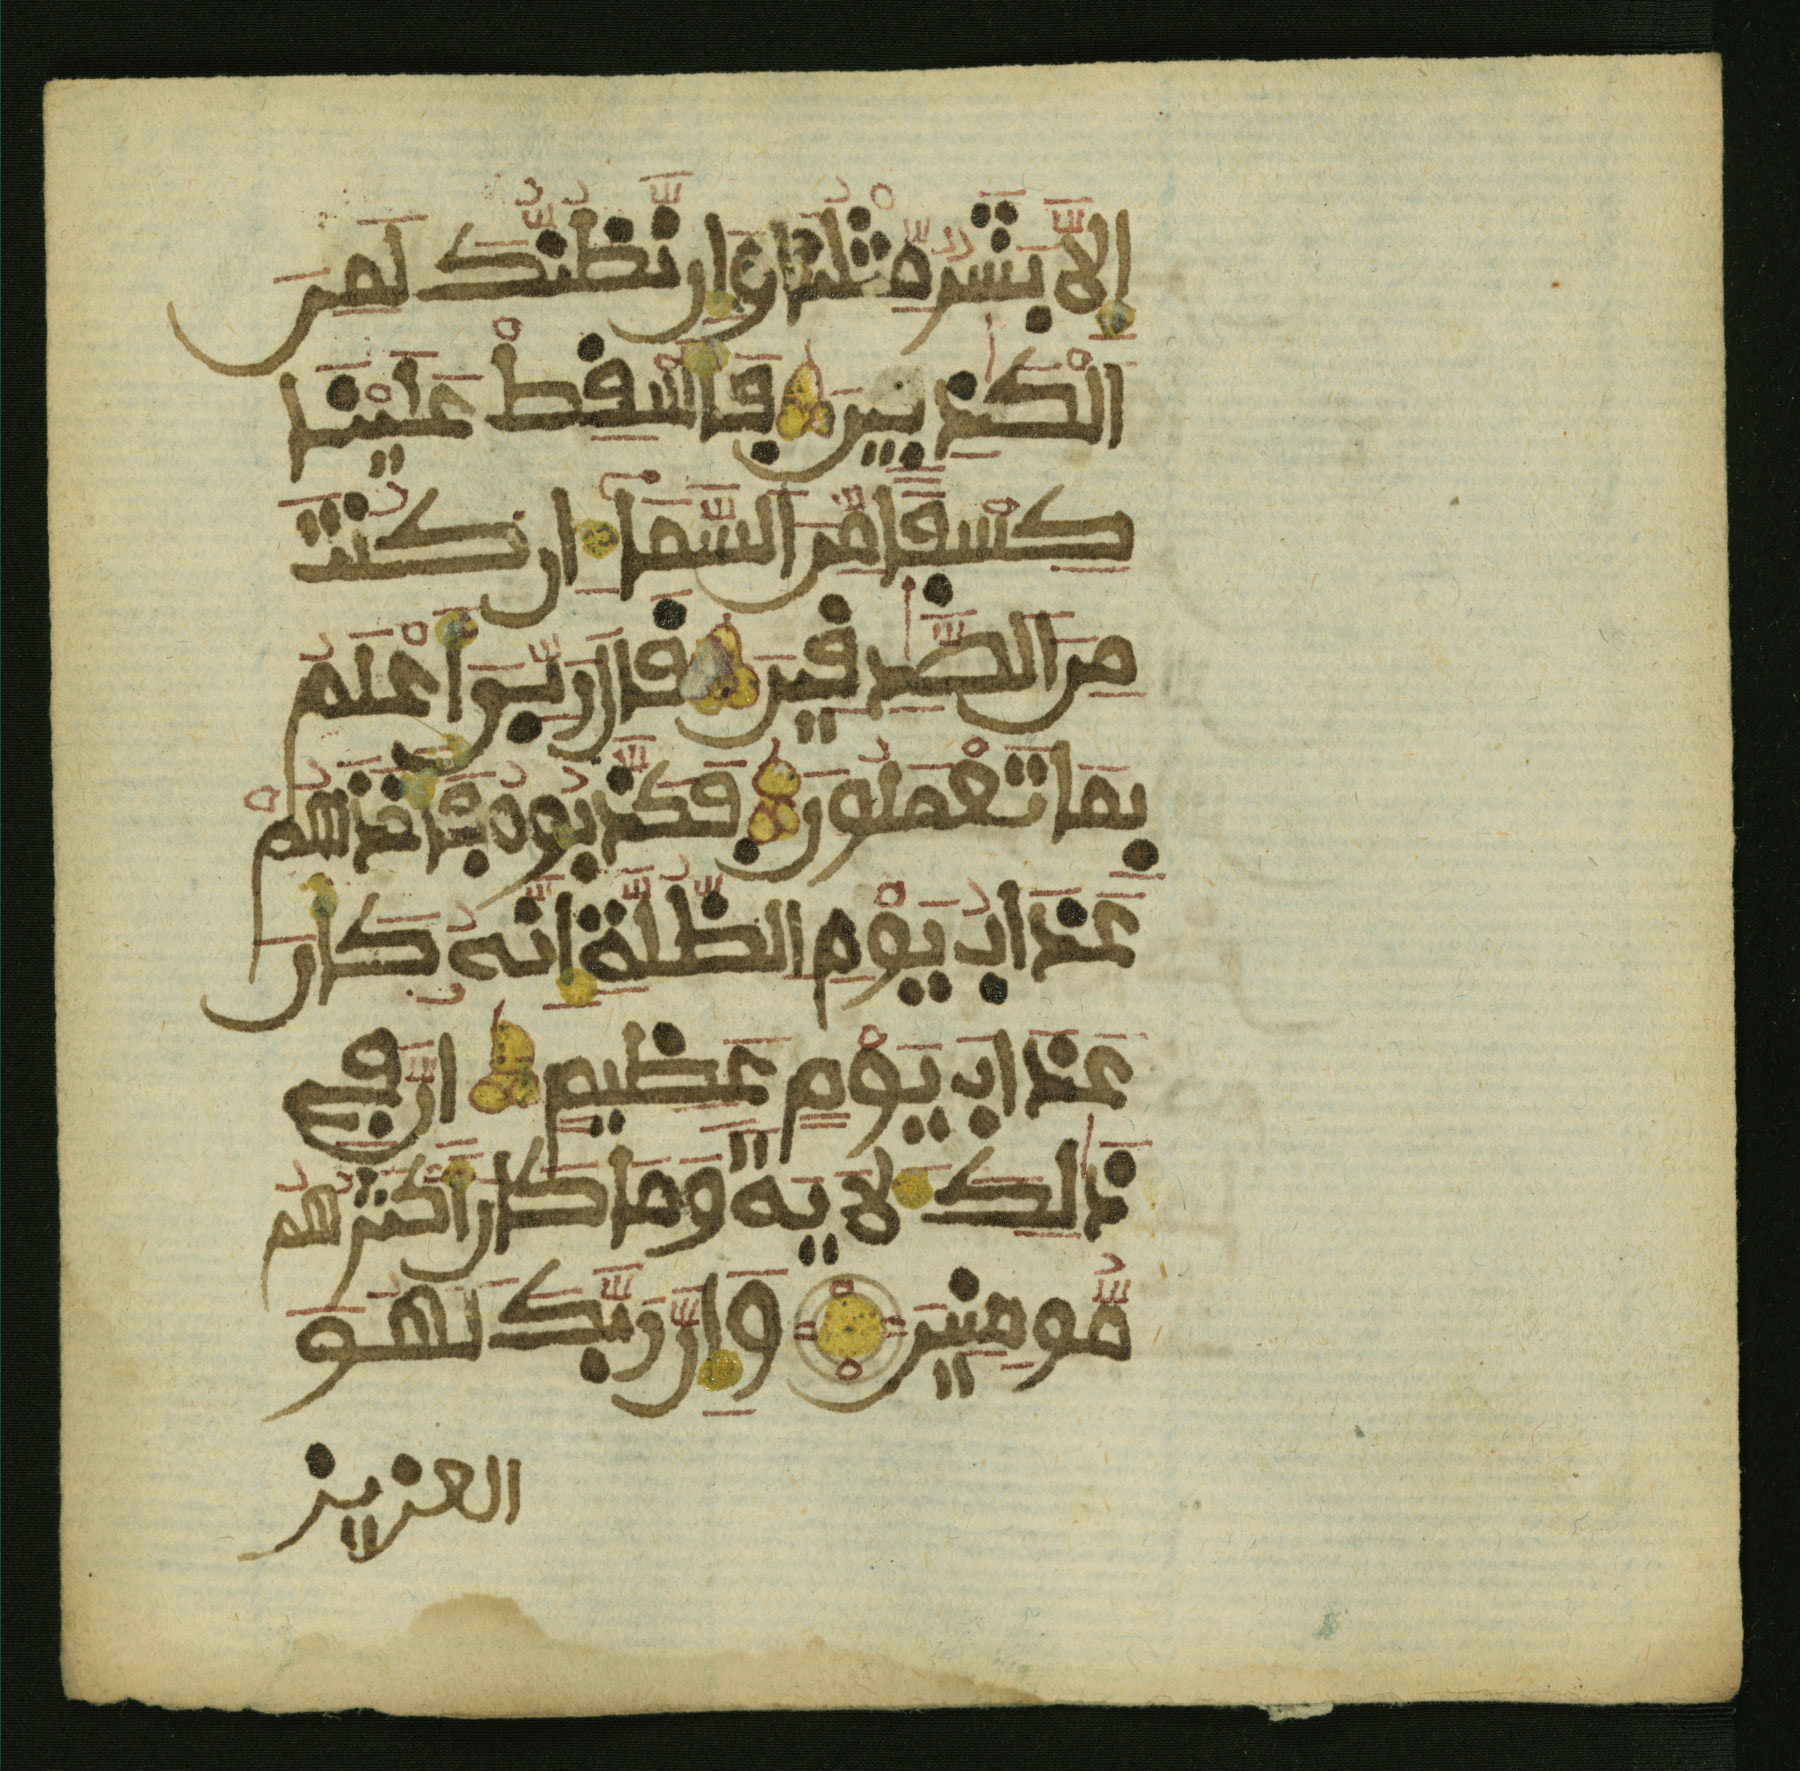 إِلَّا بَشَرٌ مِّثْلُنَا وَإِن نَّظُنُّكَ لَمِنَ
الْكَٰذِبِينَ فَأَسْقِطْ عَلَيْنَا
كِسْفًا مِّنَ السَّمَآءِ ان كُنتَ
مِنَ الصَّٰدِقِينَ قَالَ رَبِّيَ أَعْلَمُ
بِمَا تَعْمَلُونَ فَكَذَّبُوهُ فَأَخَذَهُمْ
عَذَابُ يَوْمِ الظُّلَّةِ إِنَّهُ كَانَ
عَذَابَ يَوْمٍ عَظِيمٍ إِنَّ فِي
ذَٰلِكَ لَأيَةً وَمَا كَانَ أَكْثَرُهُم
مُّومِنِينَ وَإِنَّ رَبَّكَ لَهُوَ
العزيز